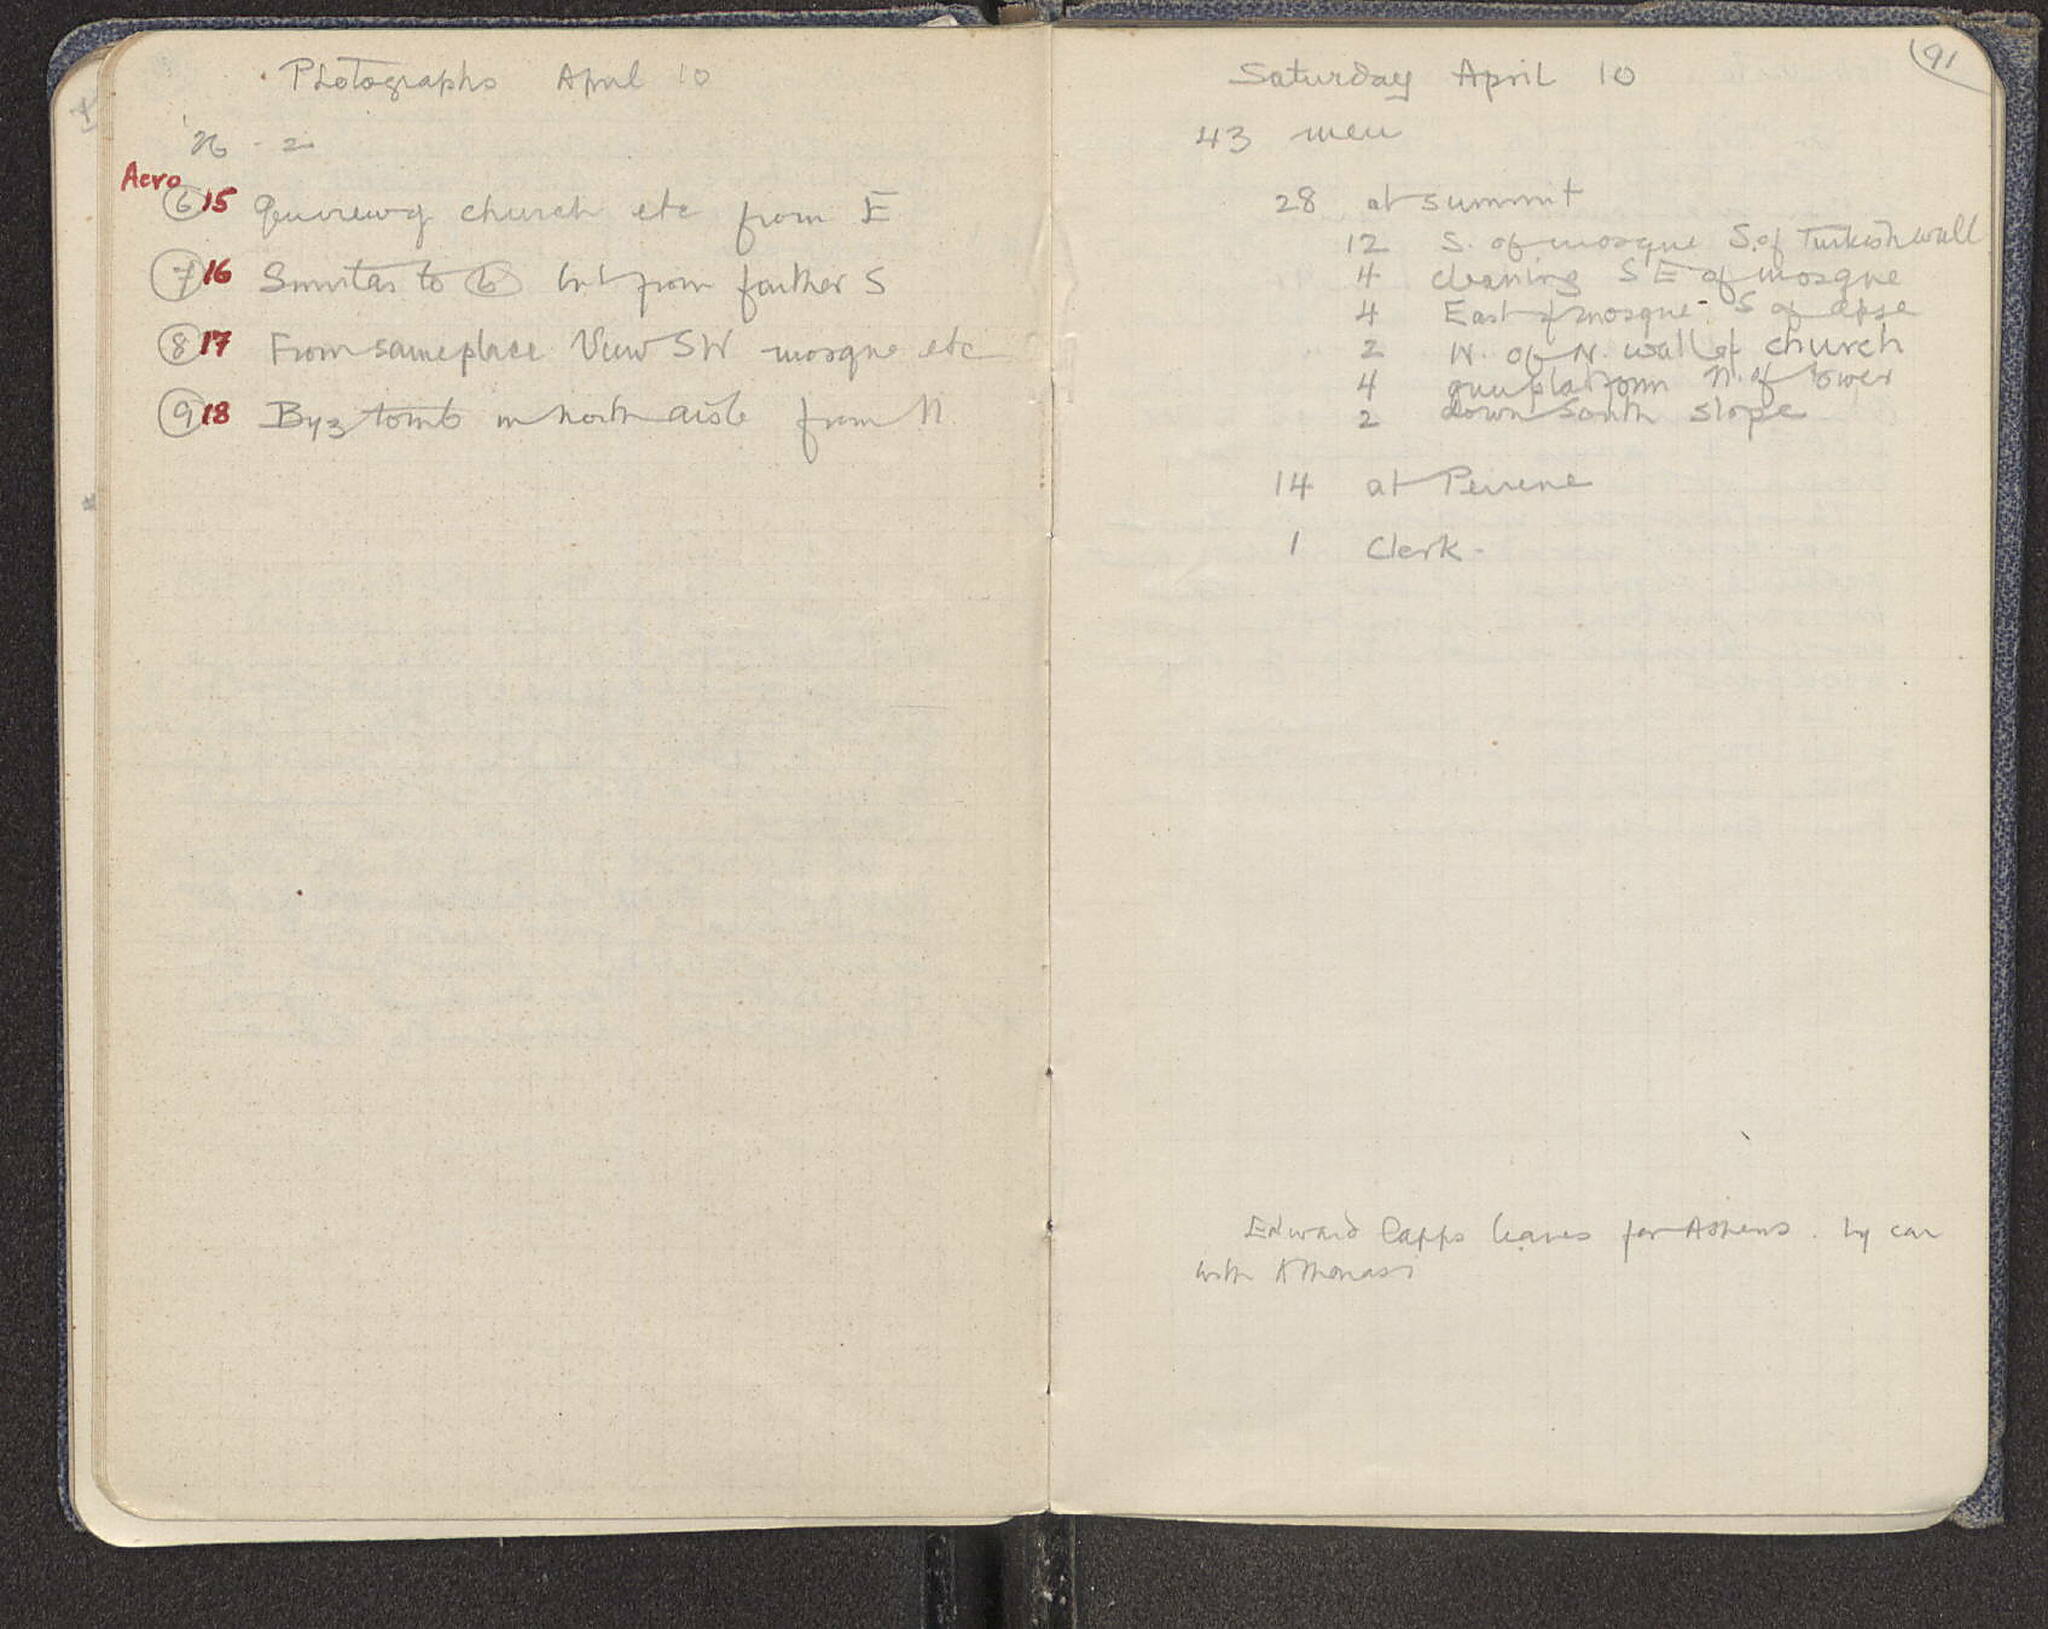 Photographs April 10
N - 2
Acro
⑥ 15 Gen view of church etc from E
⑦ 16 Similar to ⑥ but from farther S
⑧ 17 From same place View SW mosque etc
⑨ 18 Byz tomb in north aisle from N
91
Saturday April 10
43 men
28 at summit
12 S. of mosque S. of Turkish wall
4 cleaning SE of mosque
4 East of mosque - S of apse
2 W. of N. wall of church
4 gun platform N. of tower
2 down south slope
14 at Peirene
1 Clerk -
Edward Capps leaves for Athens . by car
with Athanasi